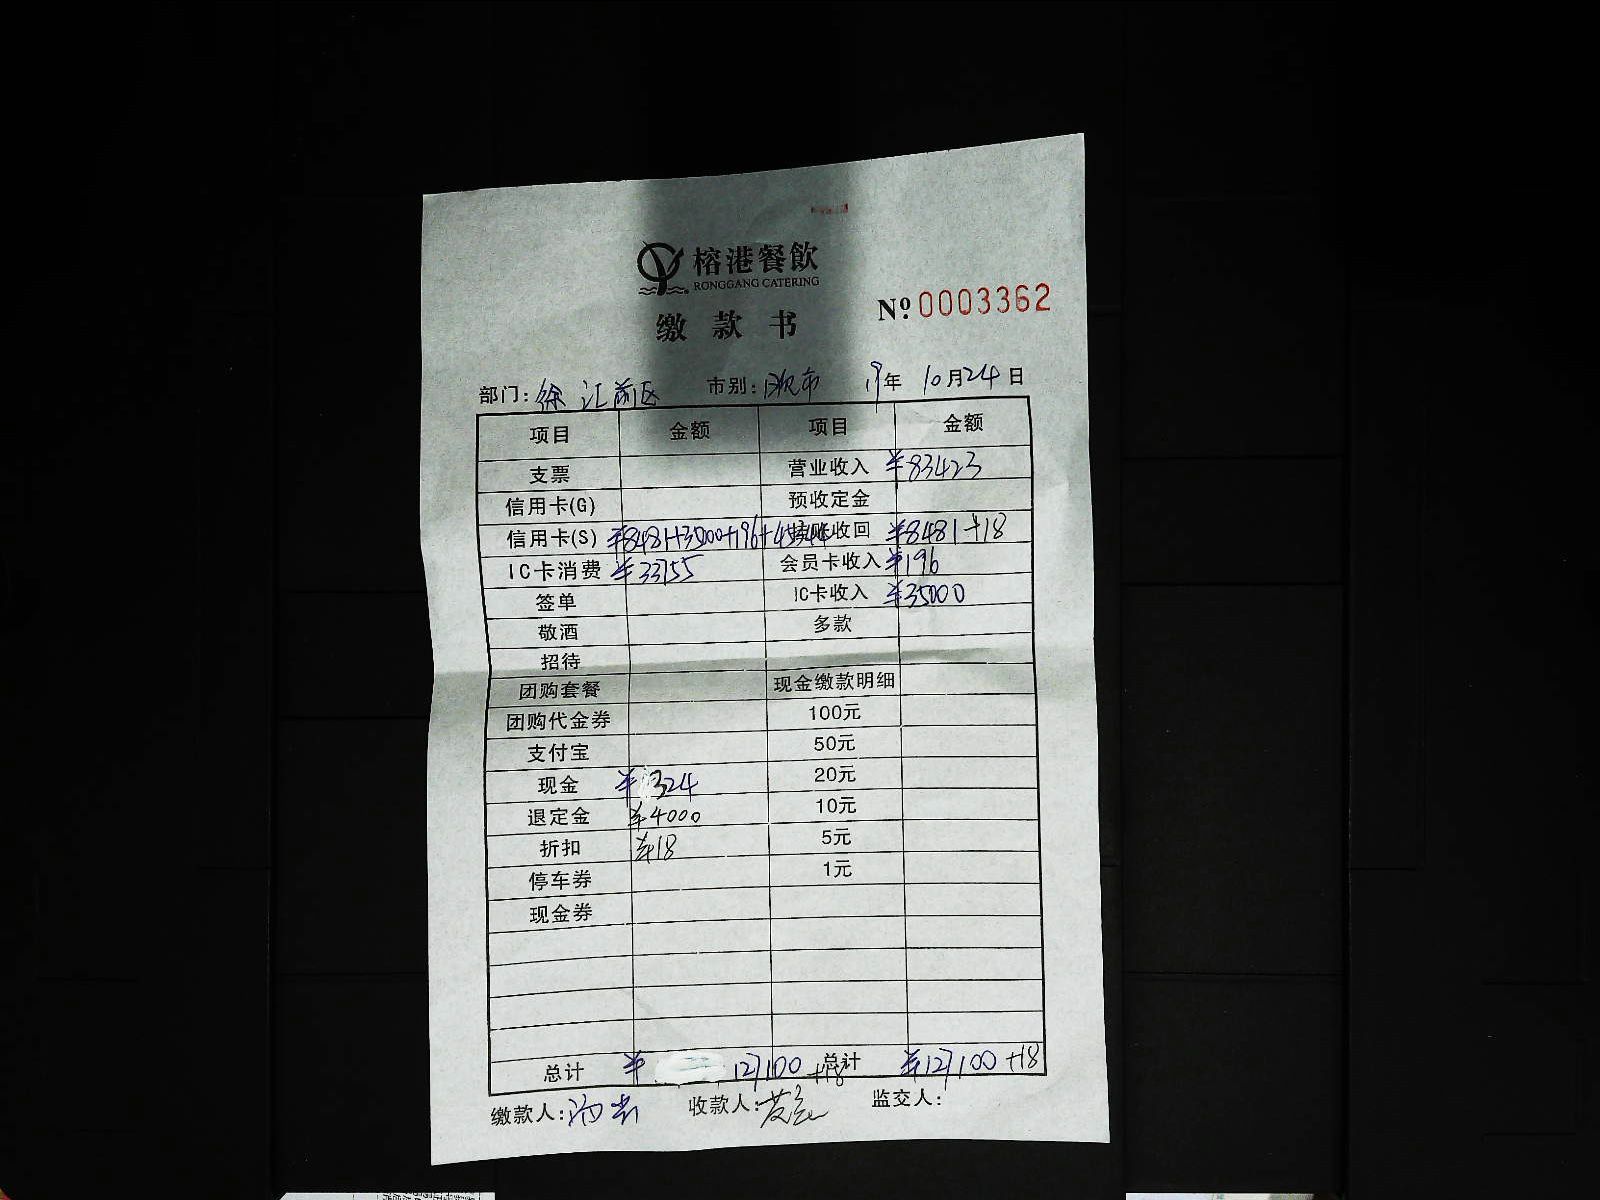 榕港餐飲
RONGGANG CATERING
缴款书
№ 0003362
部门: 徐汇前区 市别: 晚市 19年 10月24日
项目 金额 项目 金额
支票 营业收入 ¥83423
信用卡(G) 预收定金
信用卡(S) ¥8481+35000+196+ 挂账收回 ¥8481+18
IC卡消费 ¥33755 会员卡收入 ¥196
签单 IC卡收入 ¥35000
敬酒 多款
招待
团购套餐 现金缴款明细
团购代金券 100元
支付宝 50元
现金 ¥ 324 20元
退定金 ¥4000 10元
折扣 ¥18 5元
停车券 1元
现金券
总计 ¥ 127100+18 总计 ¥127100+18
缴款人: 收款人: 监交人: